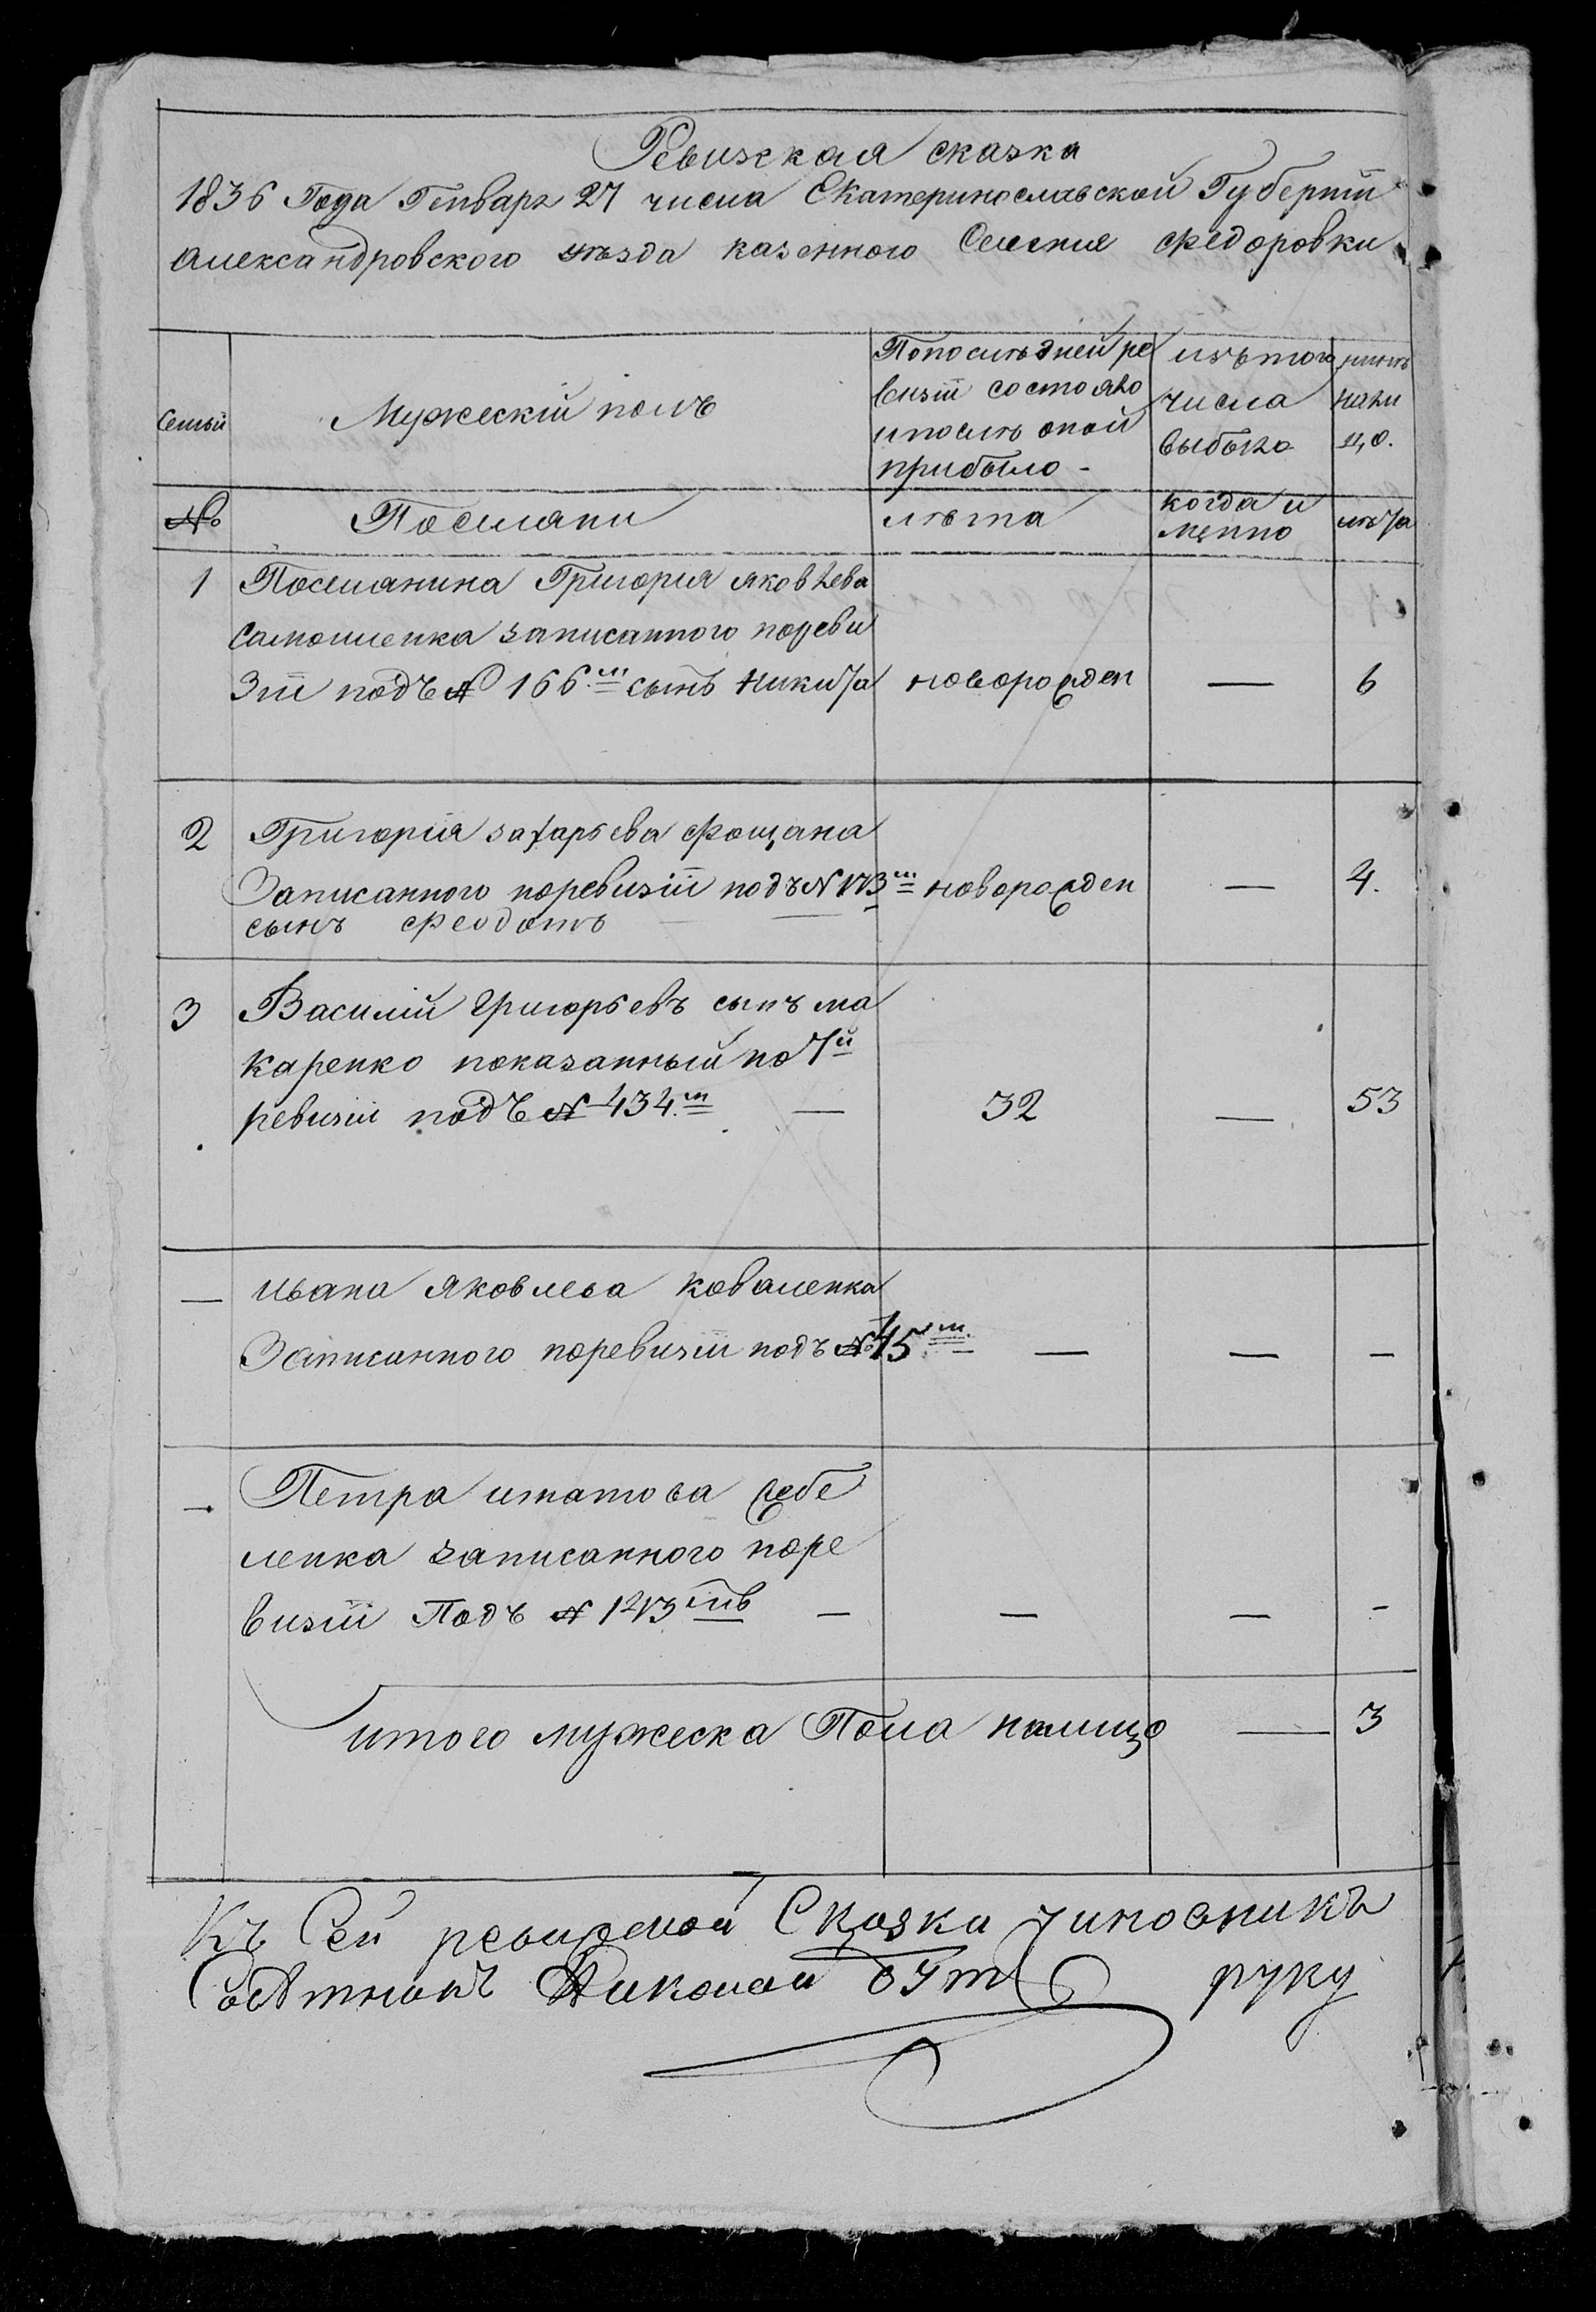 Ревизская сказка
1836 Года Генваря 27 числа Екатеринославской Губернiи
Александровского уѣзда казенного Селенiя Федоровки
Семьи
Мужескiй полъ
Попослѣдней ре
визiи состояло
ипослѣ оной
прибыло -
изътого
числа
выбыло
нынѣ
нали
цо.
№
Поселяни
лѣта
когда и
менно
лѣта
1 Поселянина Григория яковлева
Самойленка записанного поревизiи
подъ № 166.м сынъ Никита новорожден — 6
2 Григорiя захарьева Фощана
Записанного поревизiи подъ № 173м новорожден — 4.
сынъ Феодотъ
3 Василiй Григорьевъ сынъ Ма
каренко показанный по 7й
ревизiи подъ № 434.м — 32 — 53
— Ивана Яковлева Коваленка
Записанного поревизiи подъ № 45м. — — —
— Петра игнатова
ленка записанного поре
визiи Подъ № — — — -
итого мужеска Пола налицо — 3
Къ Сей ревизской Сказки чиновникъ
Николай руку